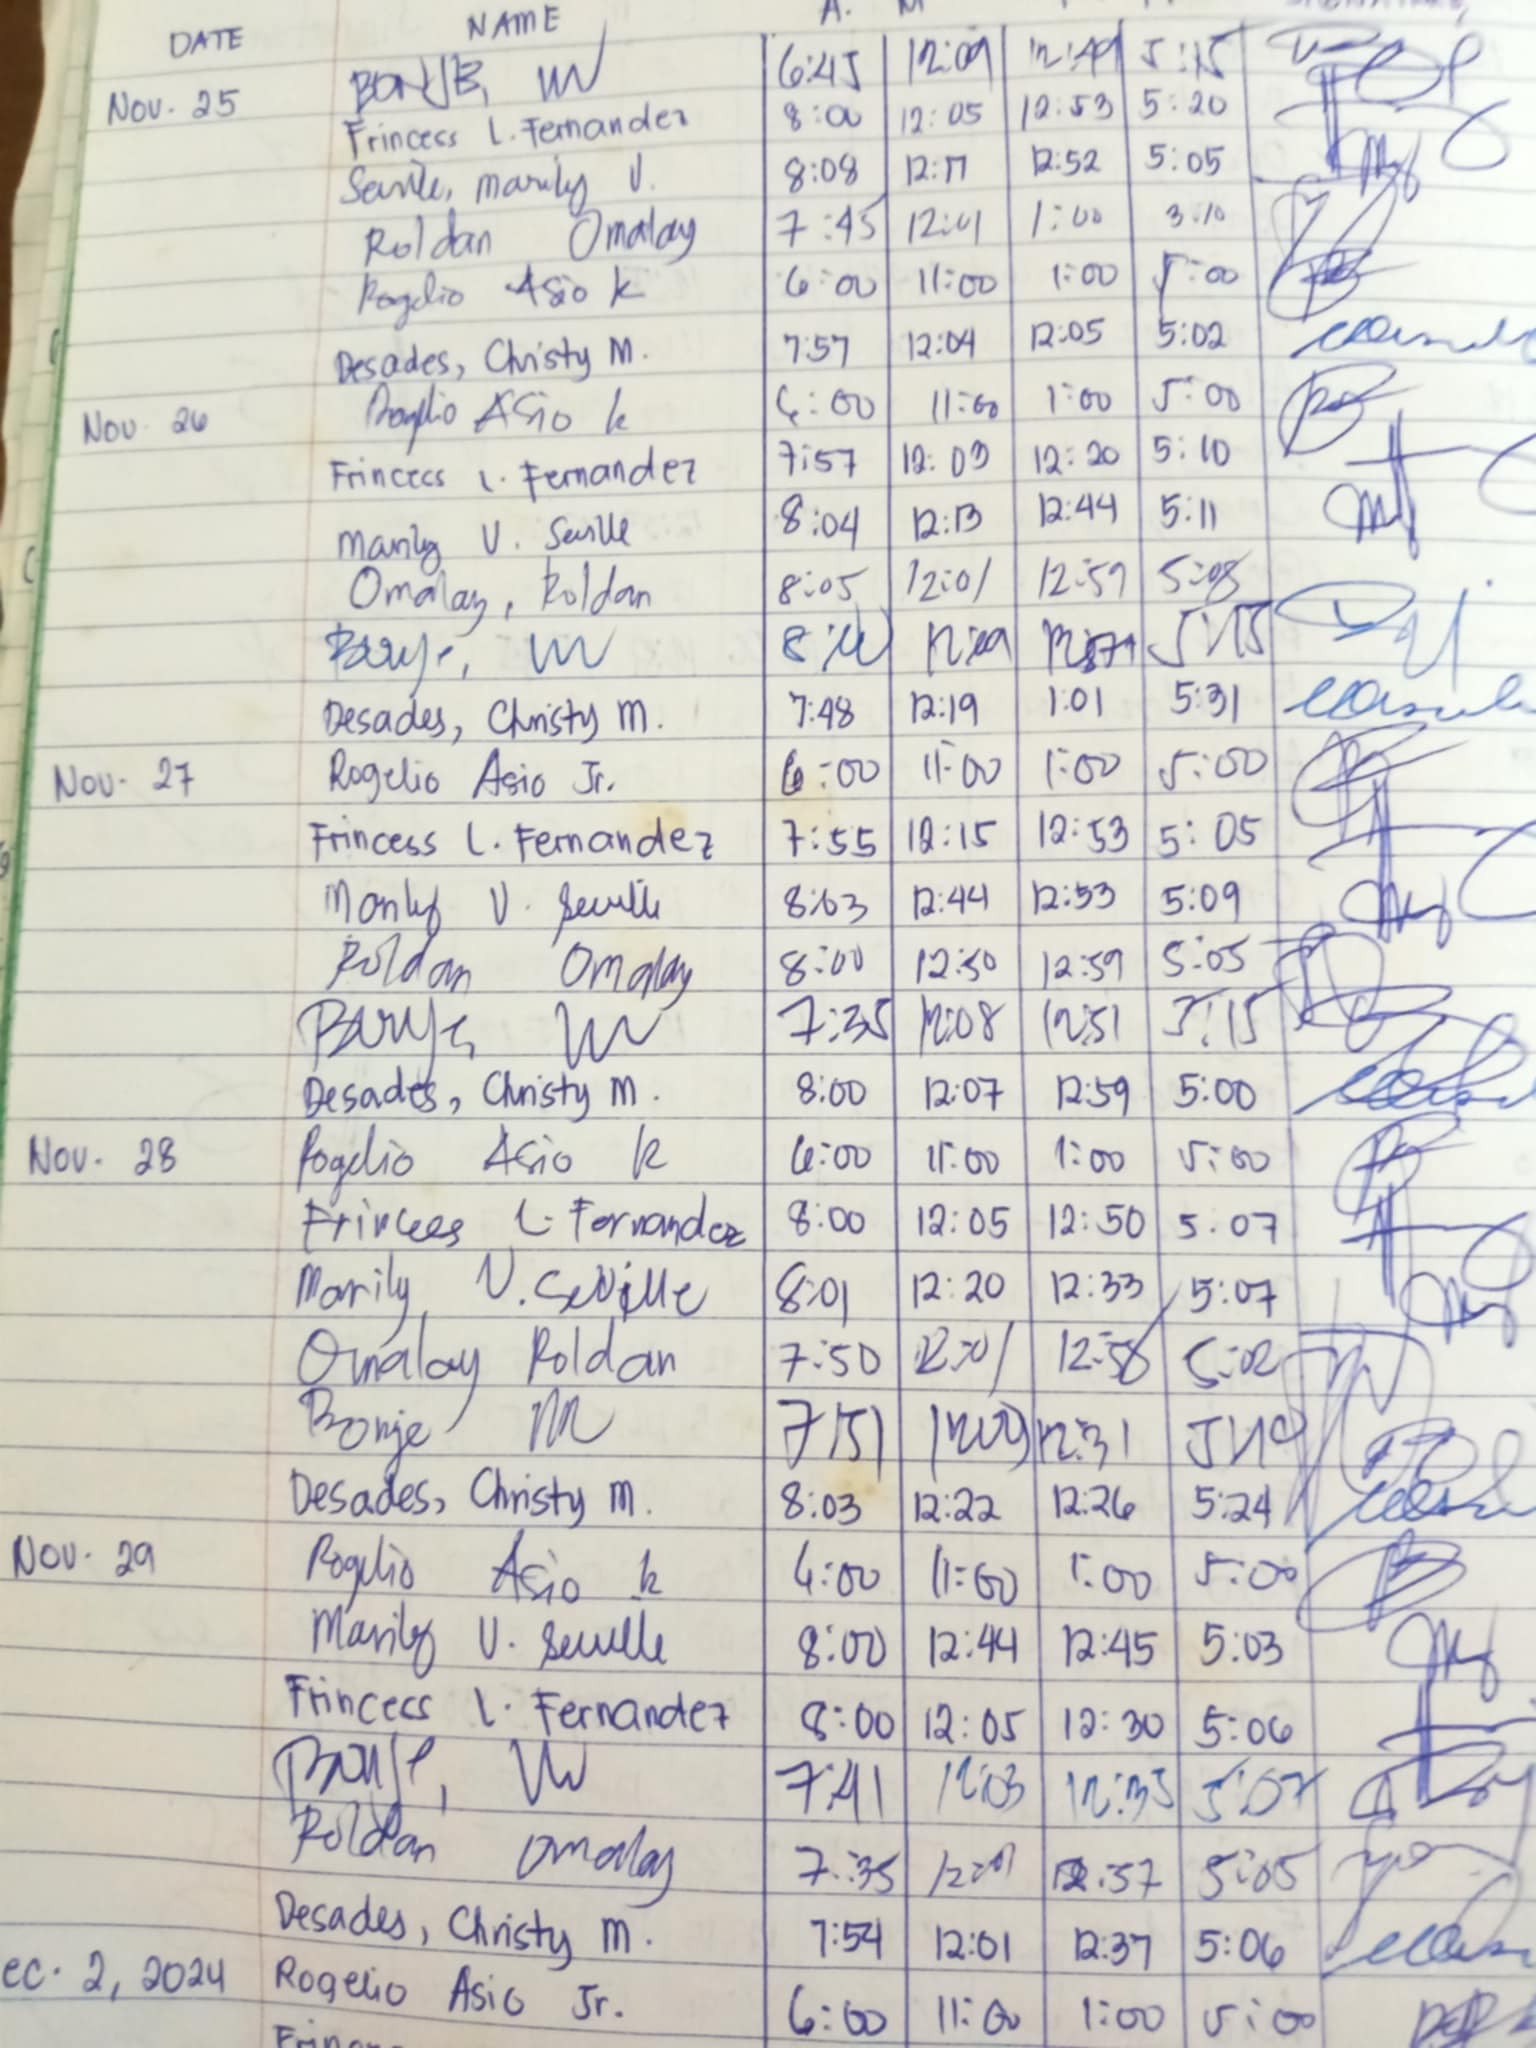 DATE NAME A. M
BONJE, 6:45 12:09 12:49 5:15
Nov. 25 Frincess L. Fernandez 8:00 12:05 12:53 5:20
Seville, Marily V. 8:08 12:17 12:52 5:05
Roldan Omalay 7:45 12:01 1:00 3:10
Rogelio Asio Jr 6:00 11:00 1:00 5:00
Desades, Christy M. 7:57 12:04 12:05 5:02
Nov. 26 Rogelio Asio Jr 6:00 11:00 1:00 5:00
Frincess L. Fernandez 7:57 12:03 12:20 5:10
Marily V. Seville 8:04 12:13 12:44 5:11
Omalay, Roldan 8:05 12:01 12:59 5:05
Bonje, 5:15
Desades, Christy M. 7:48 12:19 1:01 5:31
Nov. 27 Rogelio Asio Jr. 6:00 11:00 1:00 5:00
Frincess L. Fernandez 7:55 12:15 12:53 5:05
Marily V. Seville 8:03 12:44 12:53 5:09
Roldan Omalay 8:00 12:50 12:59 5:05
Bonje, 7:35 12:08 12:51 5:15
Desades, Christy M. 8:00 12:07 12:59 5:00
Nov. 28 Rogelio Asio Jr 6:00 11:00 1:00 5:00
Frincess L. Fernandez 8:00 12:05 12:50 5:07
Marily V. Seville 8:01 12:20 12:33 5:07
Omalay Roldan 7:50 12:01 12:58 5:02
Bonje 7:51 12:09 12:31 5:10
Desades, Christy M. 8:03 12:22 12:26 5:24
Nov. 29 Rogelio Asio Jr 6:00 11:00 1:00 5:00
Marily V. Seville 8:00 12:44 12:45 5:03
Frincess L. Fernandez 8:00 12:05 12:30 5:06
Bonje, 7:41 12:03 12:35 5:07
Roldan Omalay 7:35 12:01 12:57 5:05
Desades, Christy M. 7:54 12:01 12:37 5:06
ec. 2, 2024 Rogelio Asio Jr. 6:00 11:00 1:00 5:00